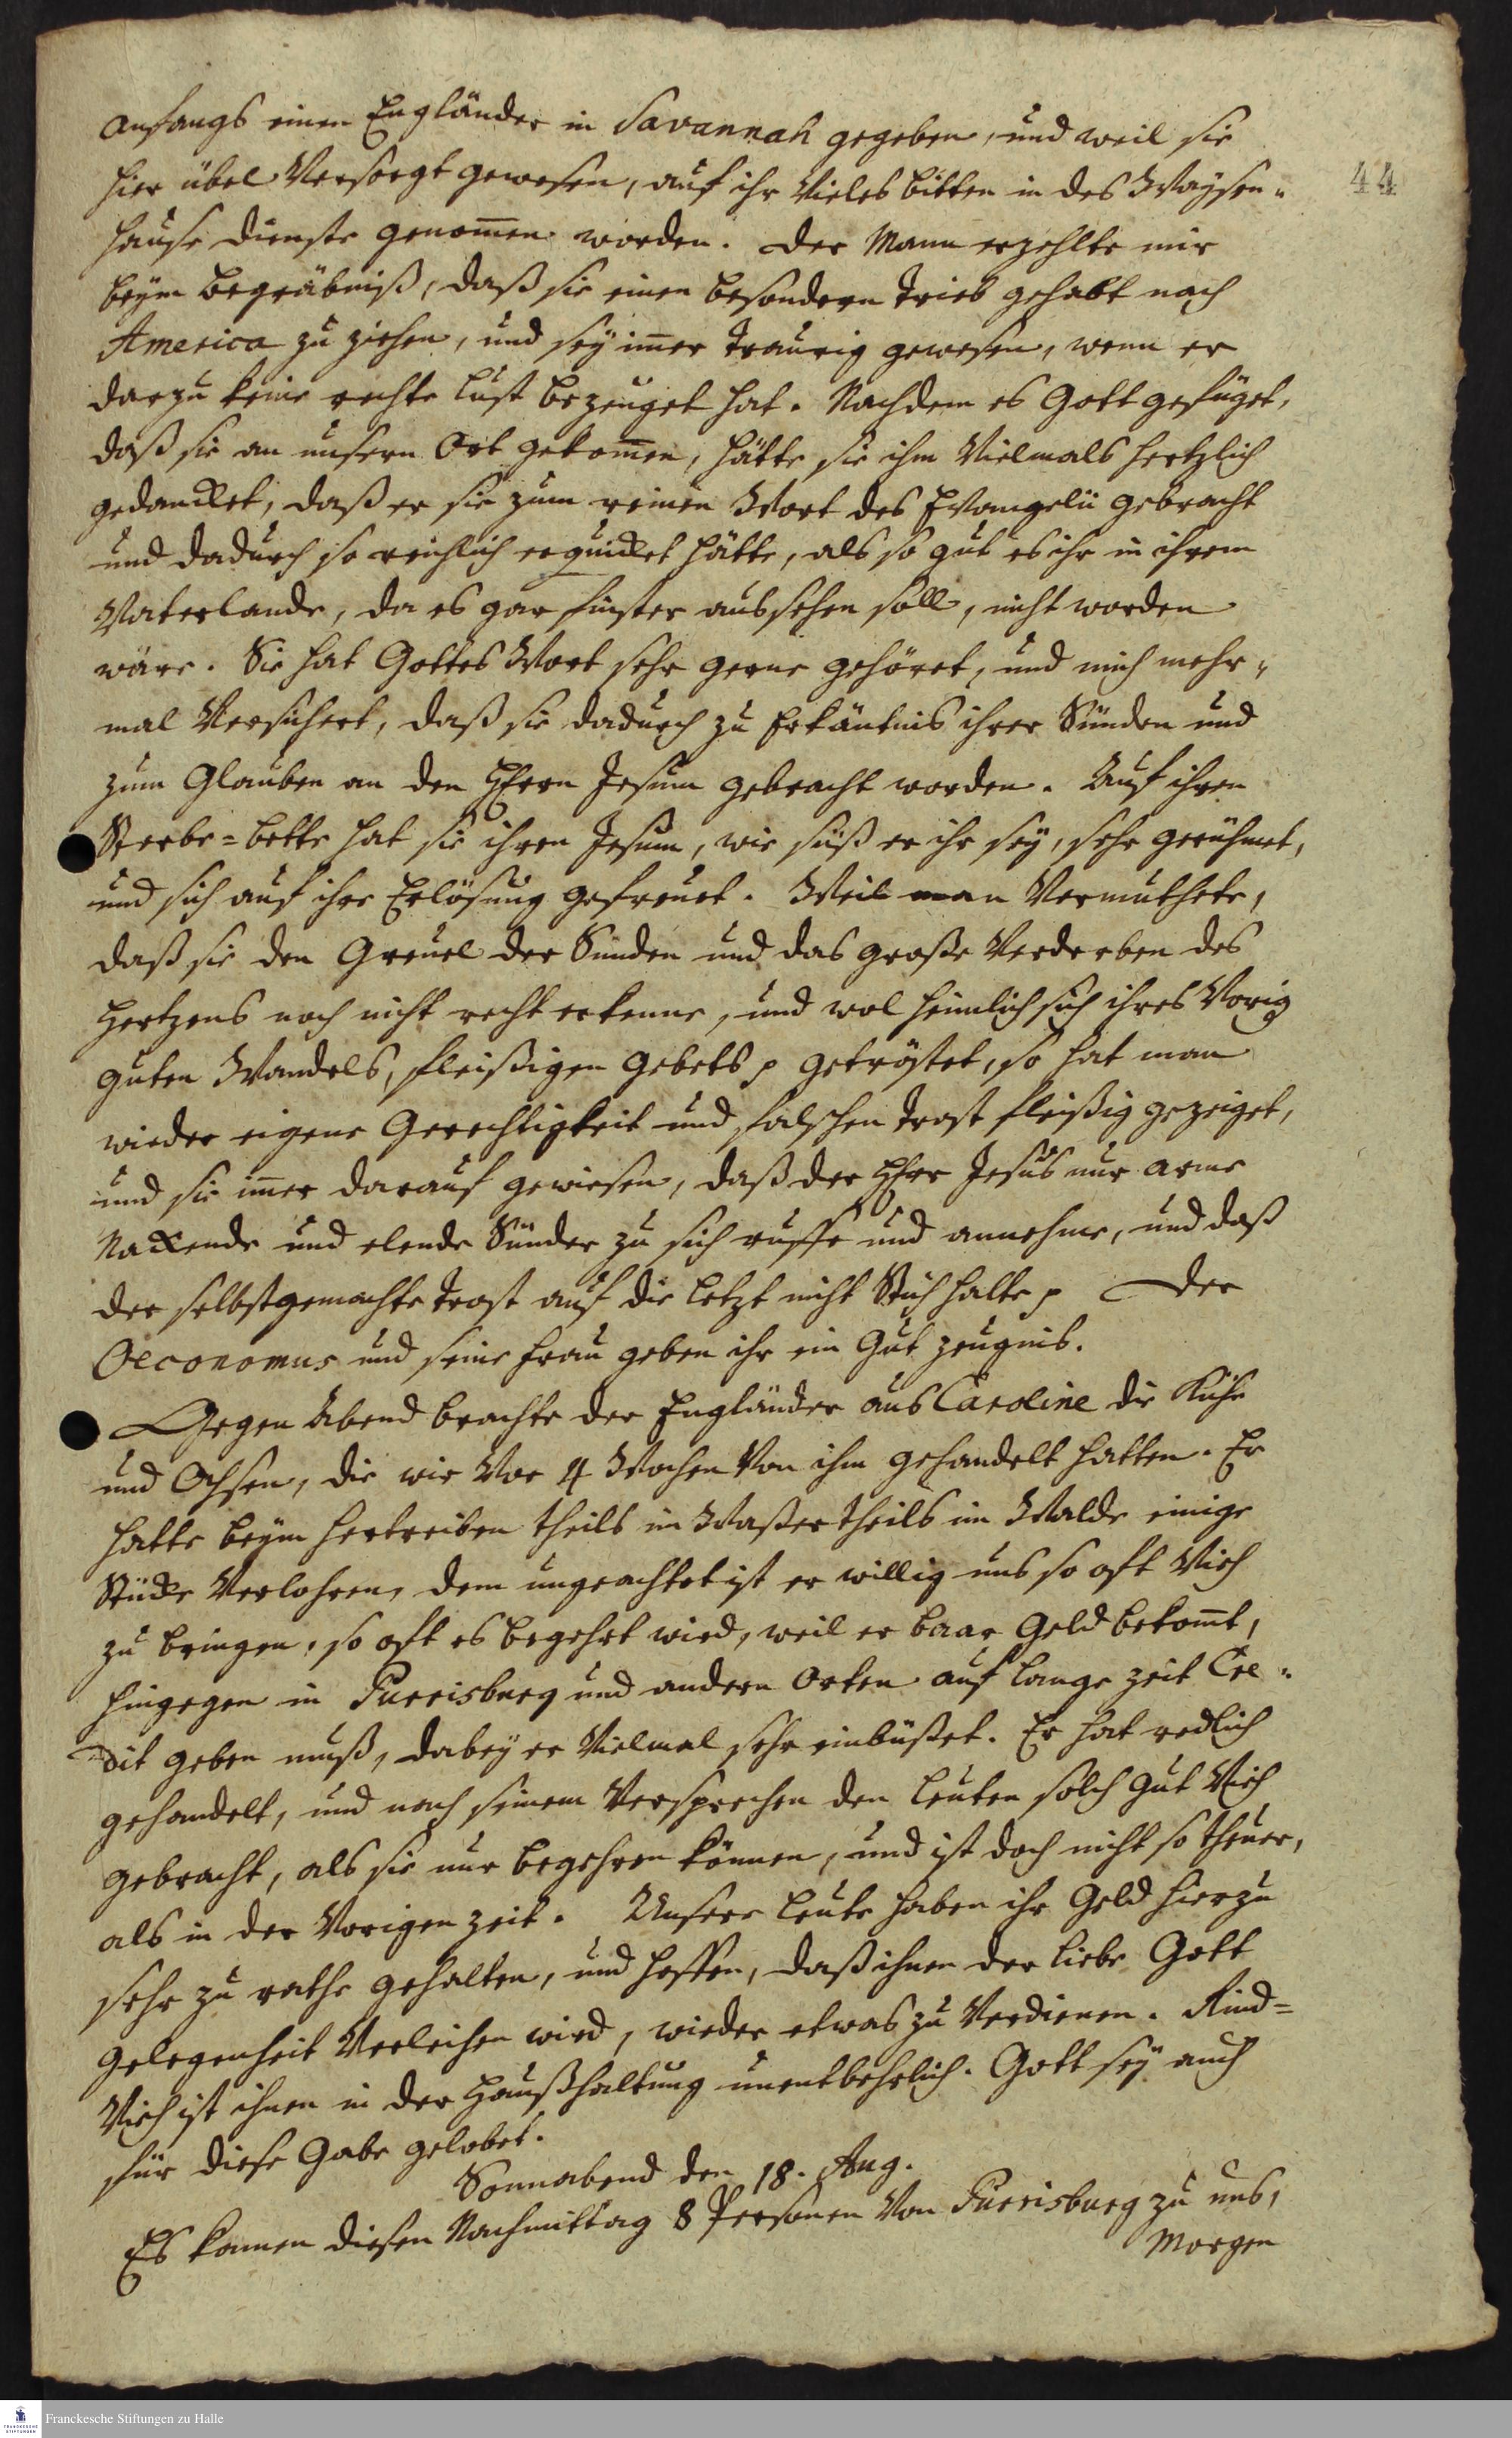 anfangs einen Engländer in Savannah gegeben, und weil sie
hier übel versorgt gewesen, auf ihr vieles bitten in des Waysen-
hause dienste genom̄en worden. Der Mann erzehlte mir
beym begräbniß, daß sie einen besondern trieb gehabt nach
America zu ziehen, und sey im̄er traurig gewesen, wenn er
darzu keine rechte lust bezeuget hat. Nachdem es Gott gefüget,
daß sie an unsern Ort gekom̄en, hätte sie ihm vielmals hertzlich
gedancket, daß er sie zum reinen Wort des Evangelii gebracht
und dadurch so reichlich erquicket hätte, als so gut es ihr in ihrem
Vaterlande, da es gar finster aussehen soll, nicht worden
wäre. Sie hat Gottes Wort sehr gerne gehöret, und mich mehr-
mal versichert, daß sie dadurch zu Erkäntnis ihrer Sünden und
zum Glauben an den HErrn Jesum gebracht worden. Auf ihren
Sterbe=bette hat sie ihren Jesum, wie süß er ihr sey, sehr gerühmet,
und sich auf ihre Erlösung gefreuet. Weil man vermuthete,
daß sie den Greuel der Sünden und das große Verderben des
Hertzens noch nicht recht erkenne, und wol heimlich sich ihres vorig
guten Wandels, fleißigen Gebets p getröstet, so hat man
wieder eigene Gerechtigkeit und falschen trost fleißig gezeiget,
und sie im̄er darauf gewiesen, daß der HErr Jesus nur arme
Nackende und elende Sünder zu sich ruffe und annehme, und daß
der selbstgemachte trost auf die letzt nicht Stich halte p Der
Oeconomus und seine frau geben ihr ein Gut zeugnis.
Gegen Abend brachte der Engländer aus Caroline die Kühe
und Ochsen, die wir vor 4 Wochen von ihm gehandelt hatten. Er
hatte beym hertreiben theils im Waßer theils im Walde einige
Stücke verlohren, dem ungeachtet ist er willig uns so oft Vieh
zu bringen, so oft es begehrt wird, weil er baar Geld bekom̄t,
hingegen in Purrisburg und andern Orten auf lange zeit Cre-
dit geben muß, dabey er vielmal sehr einbüßet. Er hat redlich
gehandelt, und nach seinem Versprechen den leuten solch gut Vieh
gebracht, als sie nur begehren können, und ist doch nicht so theuer,
als in der vorigen zeit. Unsere leute haben ihr Geld hierzu
sehr zu rathe gehalten, und hoffen, daß ihnen der liebe Gott
gelegenheit verleihen wird, wieder etwas zu verdienen. Rind=
Vieh ist ihnen in der Haußhaltung unentbehrlich. Gott sey auch
für diese Gabe gelobet.
Sonnabend den 18. Aug.
Es kamen diesen Nachmittag 8 Personen von Purrisburg zu uns,
Morgen
44
Franckesche Stiftungen zu Halle